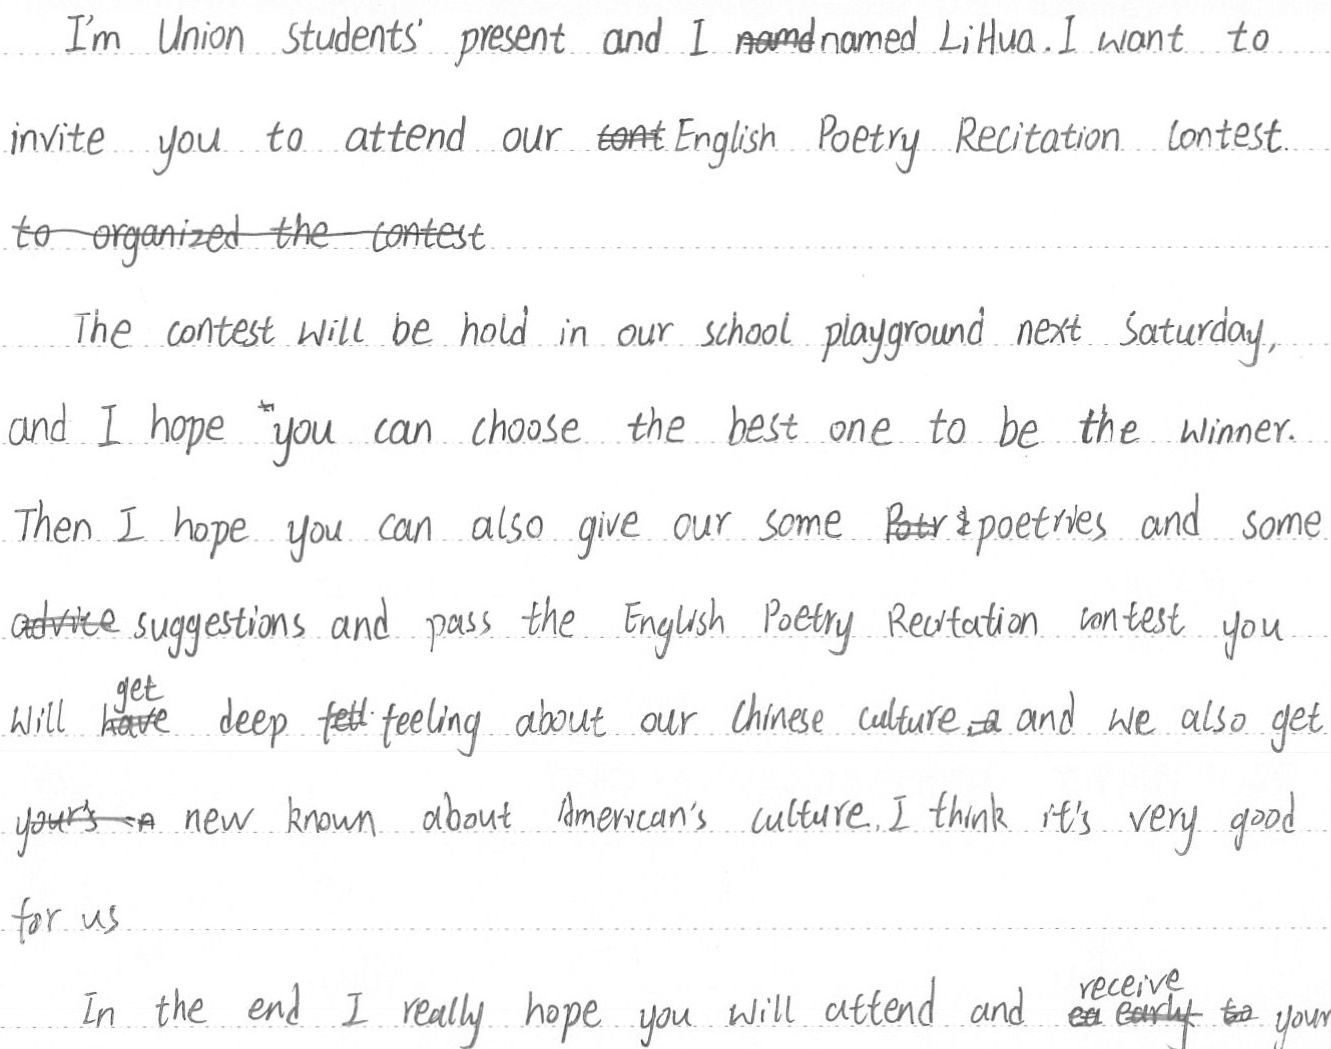 I'm Union students' present and I named LiHua. I want to
invite you to attend our English Poetry Recitation Contest.
to organized the contest
The contest will be hold in our school playground next Saturday,
and I hope you can choose the best one to be the winner.
Then I hope you can also give our some poetries and some
advice suggestions and pass the English Poetry Recitation contest you
will have get deep feeling about our Chinese culture and we also get
yours new known about American's culture. I think it's very good
for us
In the end I really hope you will attend and early to receive your